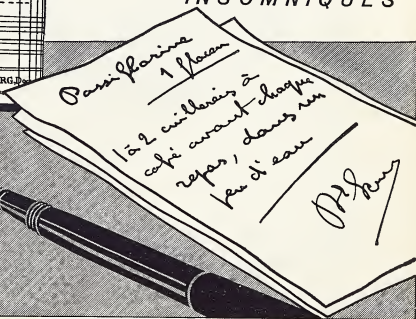 INSOMNIQUES
Passiflorine
1 flacon
1 à 2 cuillerées à
café avant chaque
repas, dans un
peu d'eau